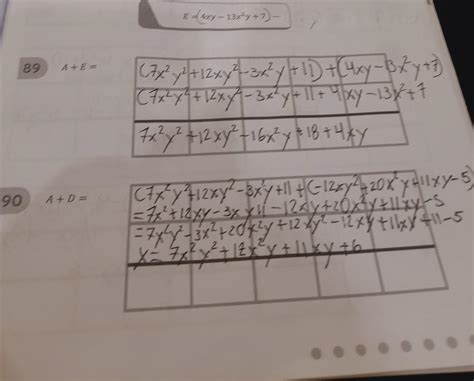 E = (4xy - 13x²y + 7) -
89 A + E =
(7x²y² + 12xy² - 3x²y + 11) + (4xy - 13x²y + 7)
(7x²y² + 12xy² - 3x²y + 11 + 4xy - 13x² + 7
7x²y² + 12xy² - 16x²y + 18 + 4xy
90 A + D =
(7x²y² + 12xy² - 3x²y + 11 + (-12xy² + 20x²y + 11xy - 5)
= 7x² + 12xy - 3xy 11 - 12xy + 20x²y + 11xy - 5
= 7x²y² - 3x² + 20x²y + 12xy² - 12xy + 11xy + 11 - 5
x = 7x²y² + 17x²y + 11xy + 6